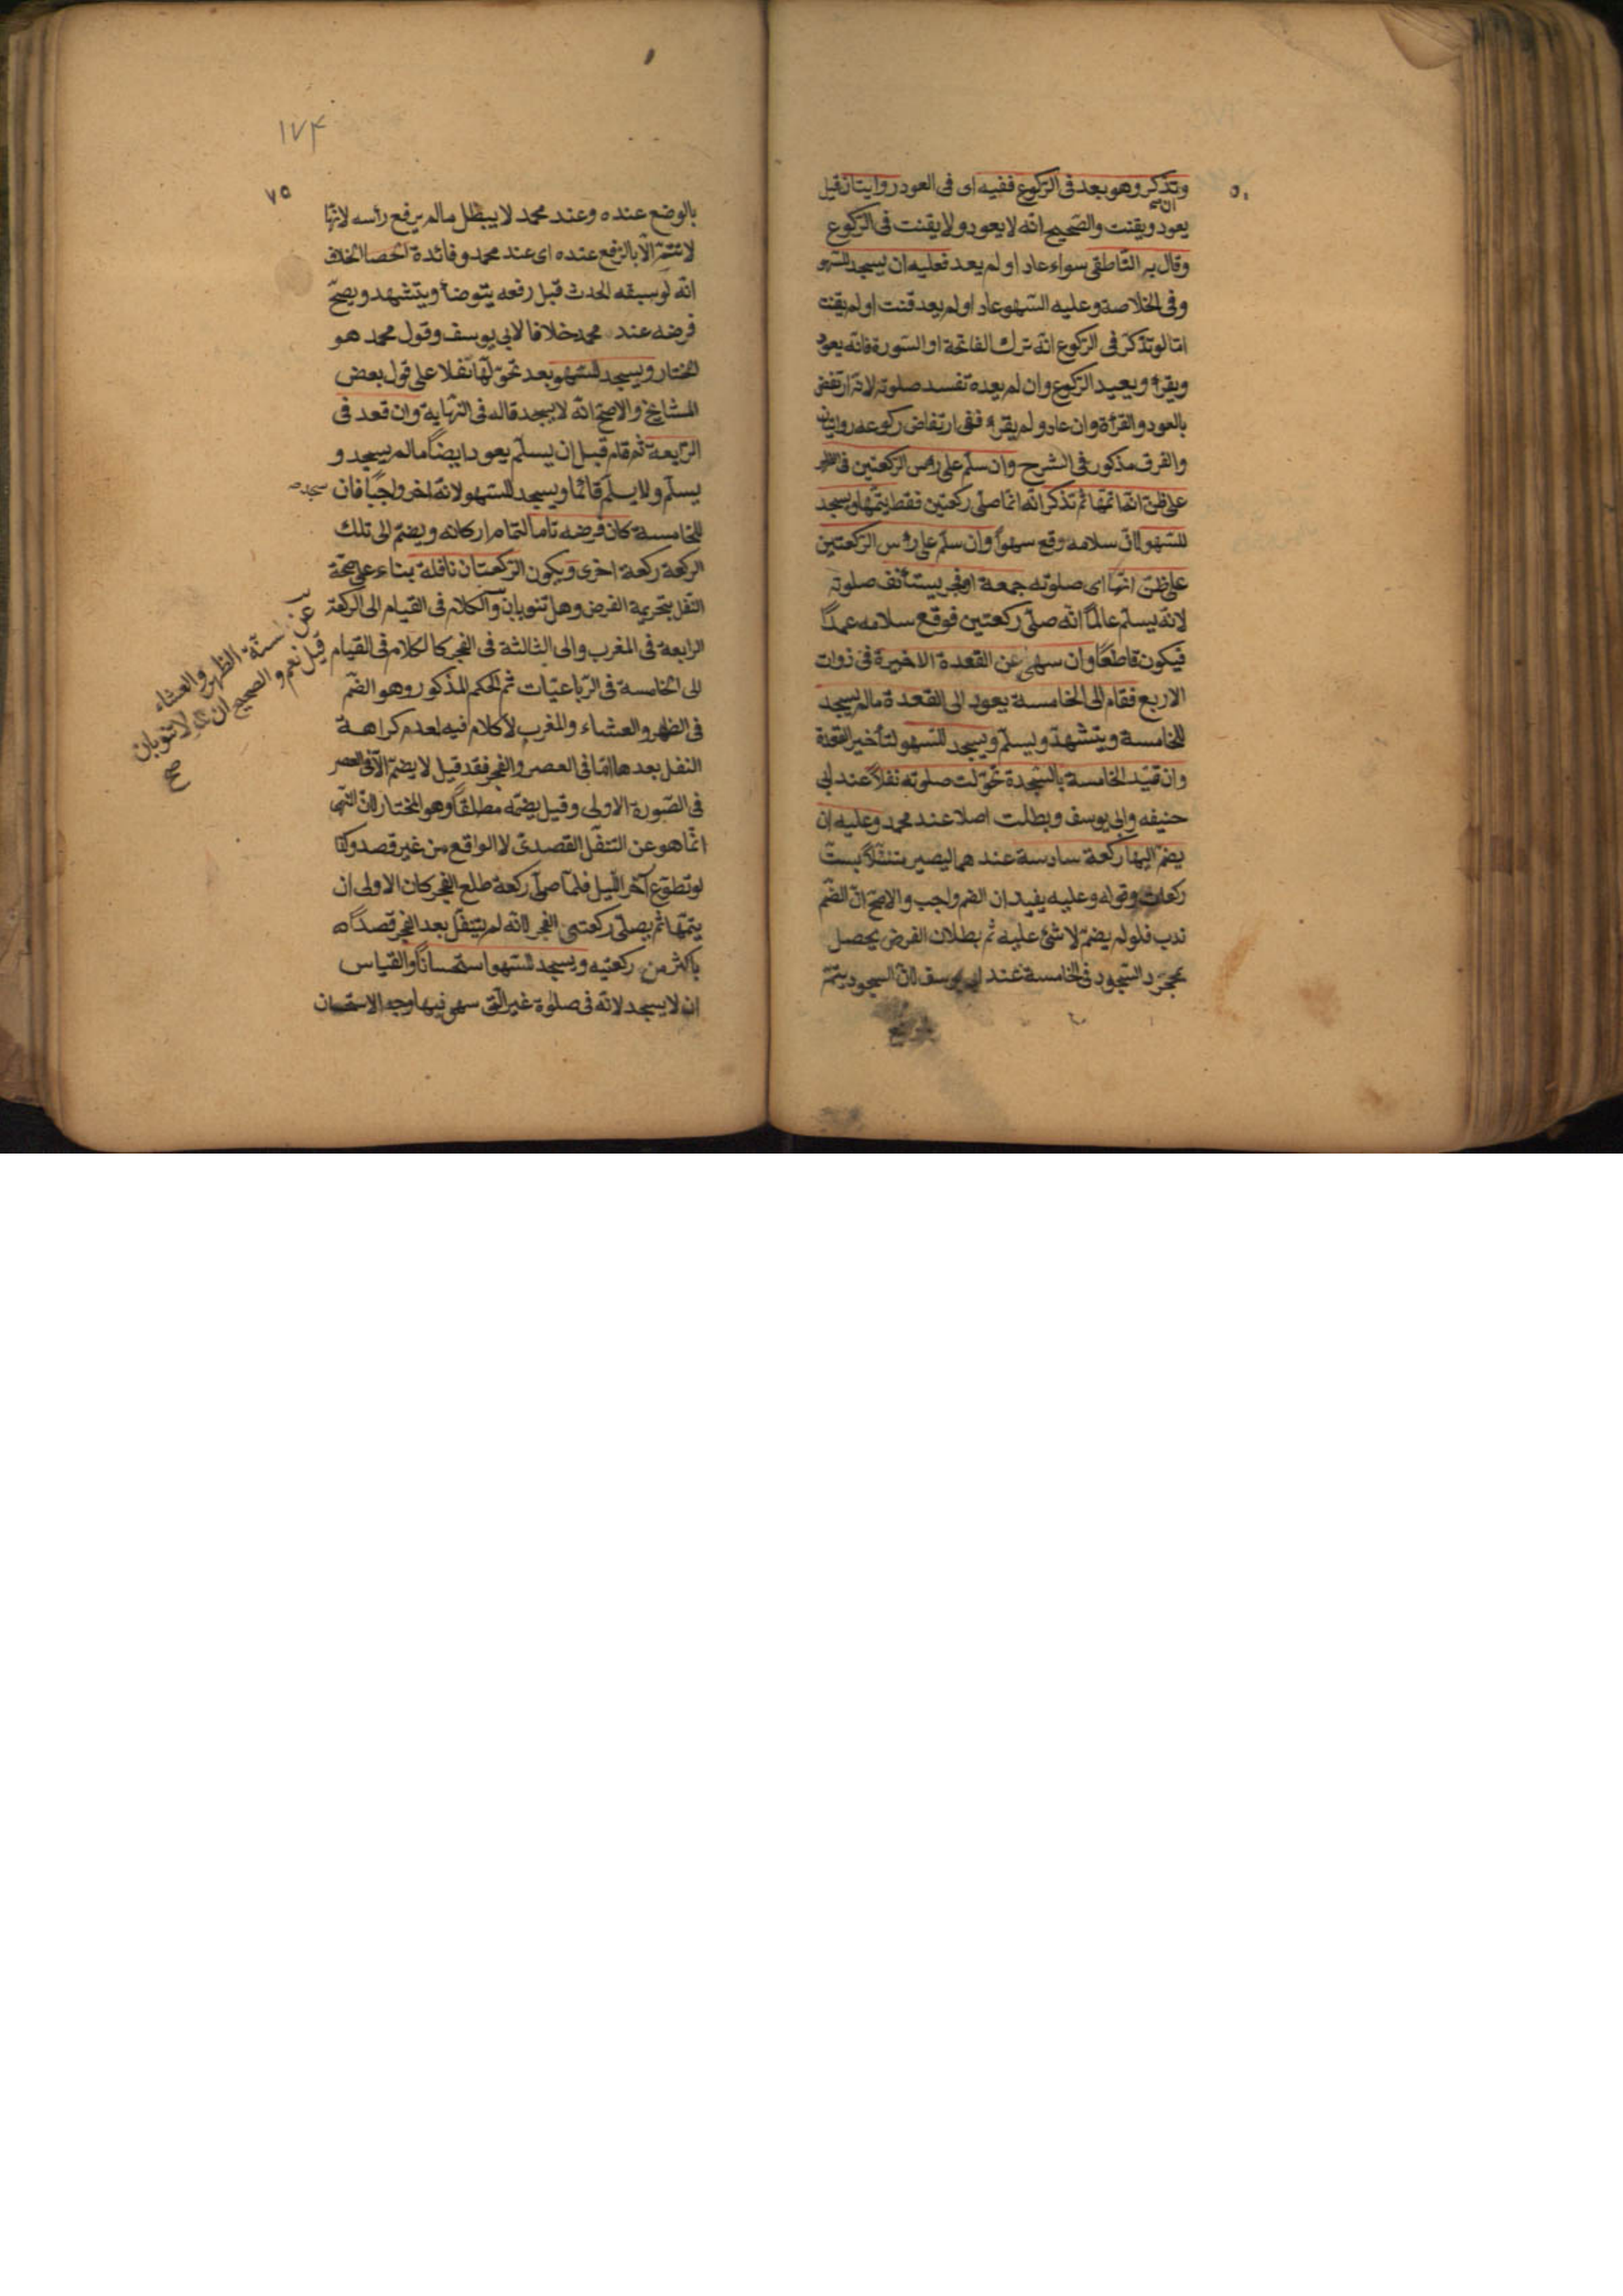 وتذكر وهو بعد فى الركوع ففيه اى فى العود روايتان قيل
يعود ويقنت والصحيح انه لا يعود ولا يقنت فى الركوع
وقال به الناطقى سواء عاد او لم يعد فعليه ان يسجد للسهو
وفى الخلاصة وعليه السهو عاد او لم يعد قنت او لم يقنت
اما لو تذكر فى الركوع انه ترك الفاتحة او السورة فانه يعود
ويقرأ ويعيد الركوع وان لم يعده تفسد صلوته لانه ارتفض
بالعود والقرأة وان عاد ولم يقرأ ففى ارتفاض ركوعه روايتان
والفرق مذكور فى الشرح وان سلم على رأس الركعتين فى الظهر
على ظن انه اتمها ثم تذكر انه انما صلى ركعتين فقط يتمها ويسجد
للسهو لان سلامه وقع سهوا وان سلم على رأس الركعتين
على ظن انها اى صلوته جمعة او فجر يستأنف صلوته
لانه يسلم عالما انه صلى ركعتين فوقع سلامه عمدا
فيكون قاطعا وان سهى عن القعدة الاخيرة فى ذوات
الاربع فقام الى الخامسة يعود الى القعدة ما لم يسجد
للخامسة ويتشهد ويسلم ويسجد للسهو لتأخير القعدة
وان قيد الخامسة بالسجدة تحولت صلوته نفلا عند ابى
حنيفه وابى يوسف وبطلت اصلا عند محمد وعليه ان
يضم اليها ركعة سادسة عندهما ليصير متنفلا بست
ركعات وقوله وعليه يفيد ان الضم واجب والاصح ان الضم
ندب فلو لم يضم لا شئ عليه ثم بطلان الفرض يحصل
بمجرد السجود فى الخامسة عند ابى يوسف لان السجود يتم
١٧۴
٧٥
بالوضع عنده وعند محمد لا يبطل ما لم يرفع رأسه لانها
لا تتم الا بالرفع عنده اى عند محمد وفائدة الخلاف
انه لو سبقه الحدث قبل رفعه يتوضأ ويتشهد ويصح
فرضه عند محمد خلافا لابى يوسف وقول محمد هو
المختار ويسجد للسهو بعد تحولها نفلا على قول بعض
المشايخ والاصح انه لا يسجد قاله فى النهاية وان قعد فى
الرابعة ثم قام قبل ان يسلم يعود ايضا ما لم يسجد و
يسلم ولا يسلم قائما ويسجد للسهو لانه اخر واجبا فان سجد
للخامسة كان فرضه تاما لتمام اركانه ويضم الى تلك
الركعة ركعة اخرى ويكون الركعتان نافلة بناء على صحة
النفل بتحريمة الفرض وهل تنوبان والكلام فى القيام الى الركعة
الرابعة فى المغرب والى الثالثة فى الفجر كالكلام فى القيام
الى الخامسة فى الرباعيات ثم الحكم المذكور وهو الضم
فى الظهر والعشاء والمغرب لا كلام فيه لعدم كراهة
النفل بعدها اما فى العصر والفجر فقد قيل لا يضم الا فى العصر
فى الصورة الاولى وقيل يضمه مطلقا وهو المختار لان النهى
انما هو عن التنفل القصدى لا الواقع من غير قصد وكذا
لو تطوع آخر الليل فلما صلى ركعة طلع الفجر كان الاولى ان
يتمها ثم يصلى ركعتى الفجر لانه لم يتنفل بعد الفجر قصدا
باكثر من ركعتيه ويسجد للسهو استحسانا والقياس
ان لا يسجد لانه فى صلوة غير التى سهى فيها وجه الاستحسان
عن سنة الظهر والعشاء
قيل نعم والصحيح انه لا تنوبان
صح